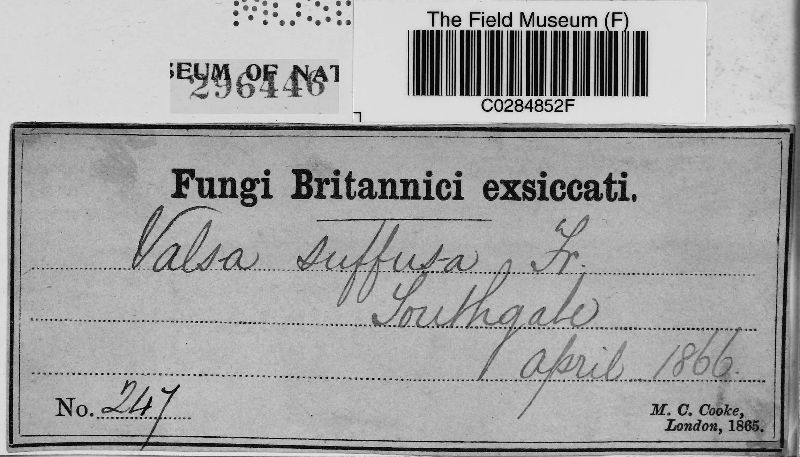 The Field Museum (F)
C0284852F
SEUM OF NAT
296446
Fungi Britannici exsiccati.
Valsa suffusa Fr.
Southgate
April 1866.
No. 247
M. C. Cooke,
London, 1865.